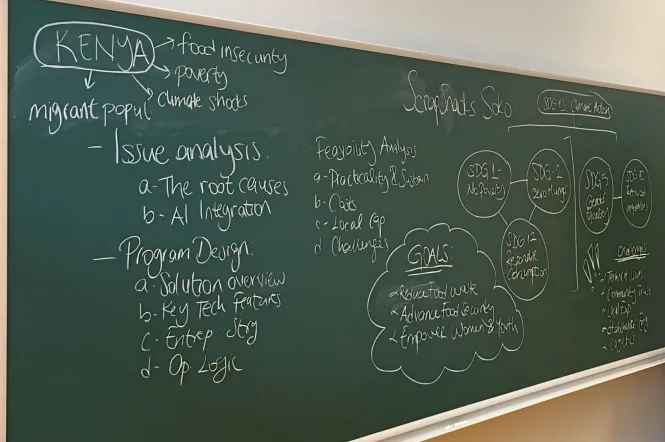 KENYA
food insecurity
poverty
climate shocks
migrant popul
- Issue analysis:
a- The root causes
b- AI Integration
- Program Design:
a- Solution overview
b- Key Tech Features
c- Entrep Strg
d- Op Logic
Feasibility Analysis
a- Practicality & Sustain
b- Costs
c- Local Cap
d Challenges
ScrapShacks Soko
GOALS:
Reduce Food waste
Advance Food Security
Empower Women & Youth
SDG 13 Climate Action
SDG 1-
No Poverty
SDG-2
Zero Hunger
SDG 12
Responsible
Consumption
SDG 5
Gender
Challenges
Community Trust
Logistics